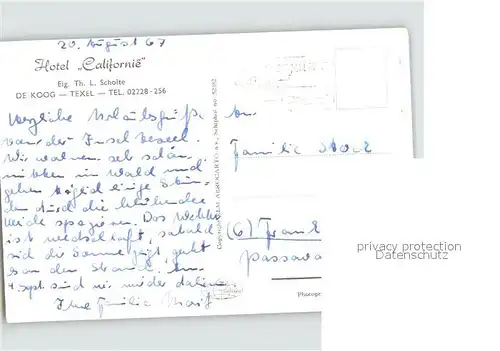 20. August 67
Hotel „Californië"
Eig. Th. L. Scholte
DE KOOG — TEXEL — TEL. 02228-256
Herzliche Urlaubsgrüße
von der Insel Texel.
Wir wohnen sehr schön
mitten im Wald und
gehen täglich einige Stun-
den durch die blühende
Heide spazieren. Das Wetter
ist wechselhaft, sobald
sich die Sonne zeigt, geht
es an den Strand. Am
4. Sept. sind wir wieder daheim.
Ihre Familie
Copyright KLM AEROCARTO n.v., Schiphol no 5202
An
Familie
(6) Frank
Passava
Photogr
privacy protection
Datenschutz